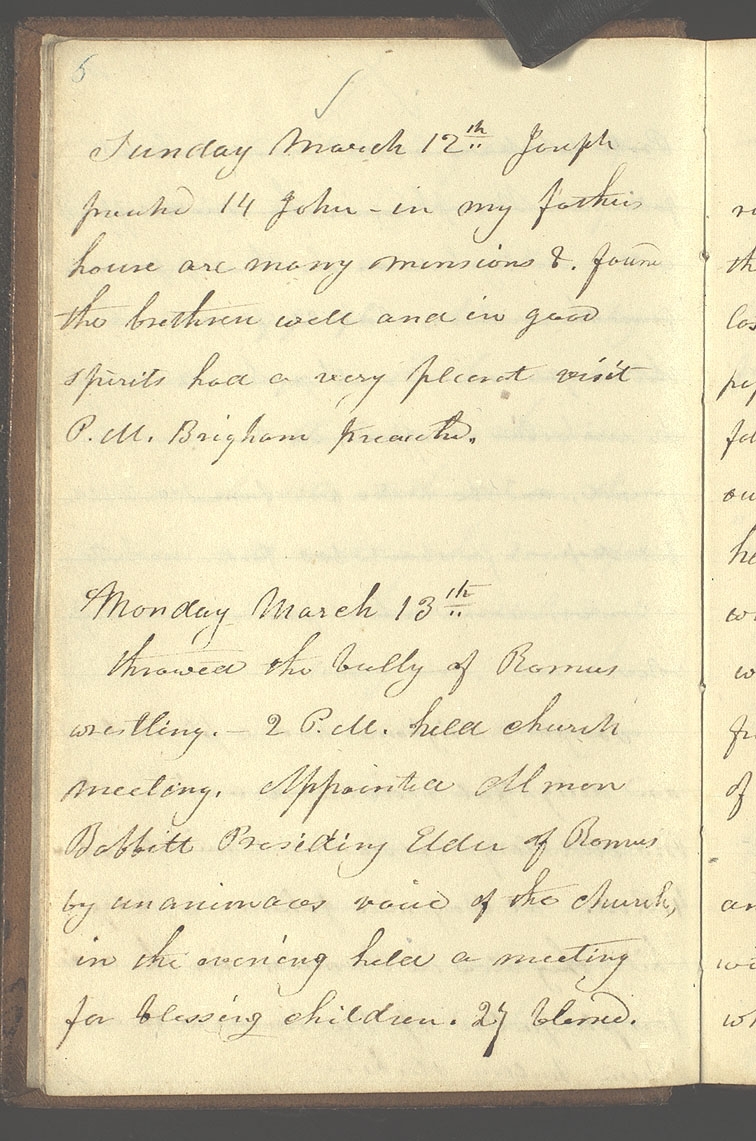 5
Sunday March 12th Joseph
preachd 14 John - in my fathers
house are many mansions &. found
the brethren well and in good
spirits had a very pleasant visit
P.M. Brigham preachd.
Monday March 13th
throwed the bully of Ramus
wrestling. - 2 P.M. held church
meeting. Appointed Almon
Babbitt Presiding Elder of Ramus
by unanimous voice of the church,
in the evening held a meeting
for blessing children. 27 blessed.